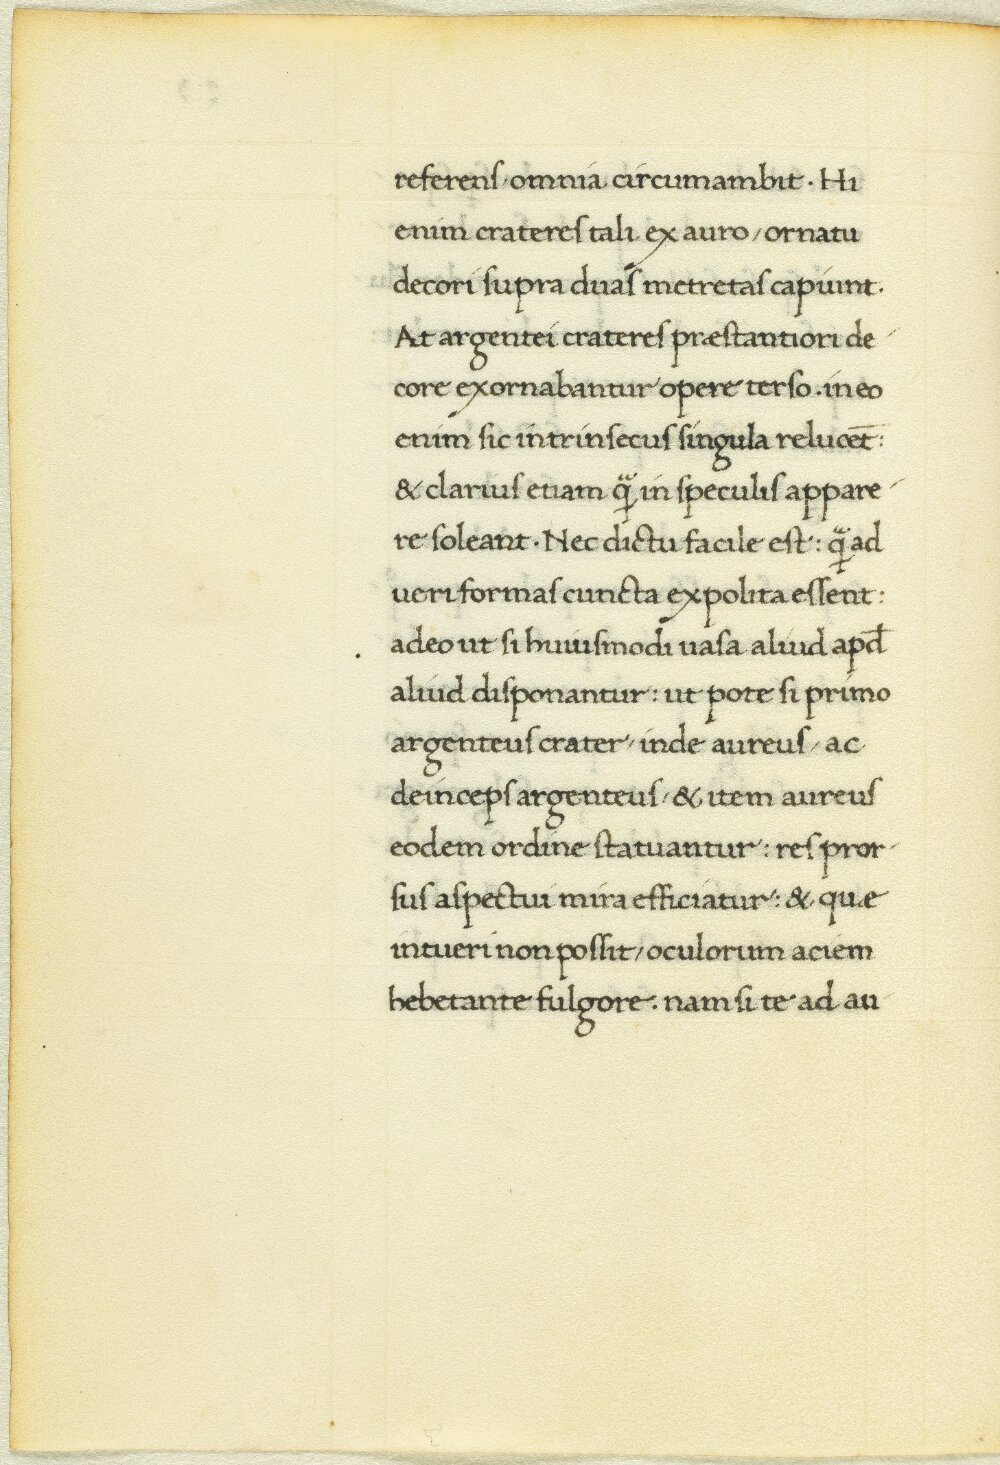 referens, omnia circumambit. Hi
enim crateres tali ex auro, ornatu
decori supra duas metretas capiunt.
At argentei crateres præstantiori de-
core exornabantur opere terso. in eo
enim sic intrinsecus singula relucēt:
& clarius etiam q̃ in speculis appare-
re soleant. Nec dictu facile est: q̃ ad
ueri formas cuncta expolita essent:
adeo ut si huiusmodi uasa aliud apđ
aliud disponantur: ut pote si primo
argenteus crater, inde aureus, ac
deinceps argenteus, & item aureus
eodem ordine statuantur: res pror-
sus aspectui mira efficiatur: & quæ
intueri non possit, oculorum aciem
hebetante fulgore. nam si te ad au-